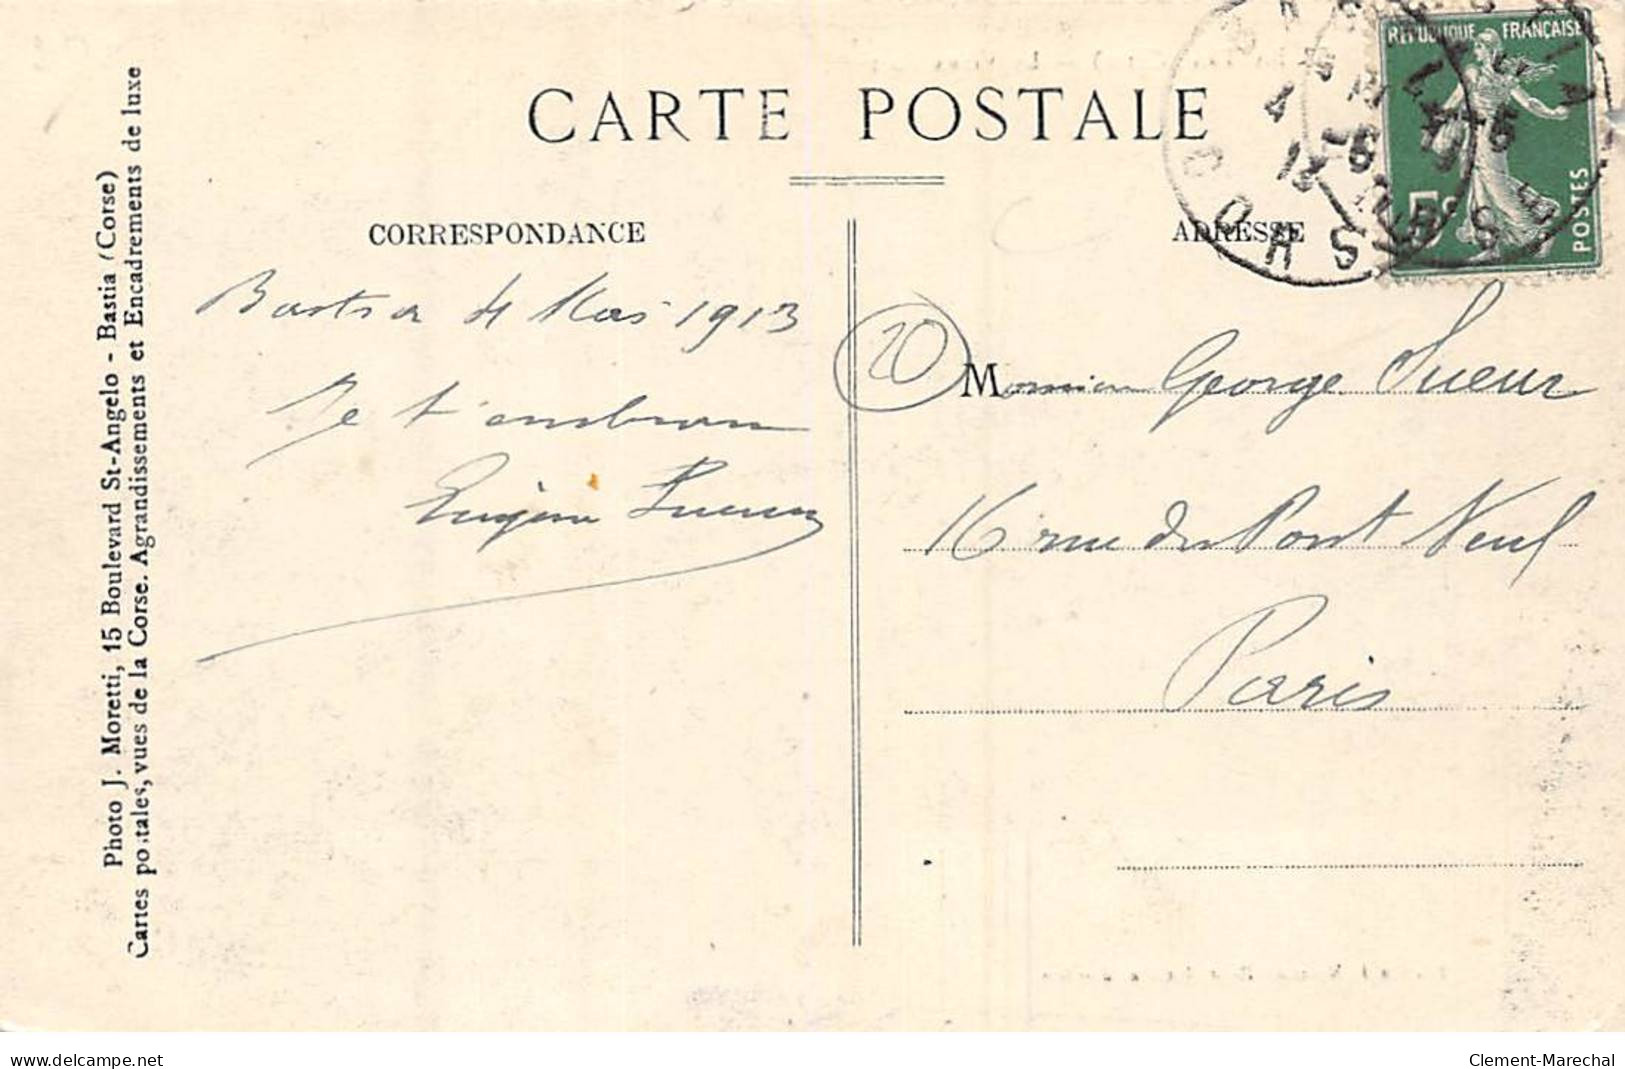 CARTE POSTALE
CORRESPONDANCE
Bastia 4 Mai 1913
Je t'embrasse
Eugène Sueur
Photo J. Moretti, 15 Boulevard St-Angelo - Bastia (Corse)
Cartes postales, vues de la Corse. Agrandissements et Encadrements de luxe
ADRESSE
REPUBLIQUE FRANÇAISE
5c
POSTES
CORSE
20
Monsieur George Sueur
16 rue du Pont Neuf
Paris
www.delcampe.net
Clement-Marechal